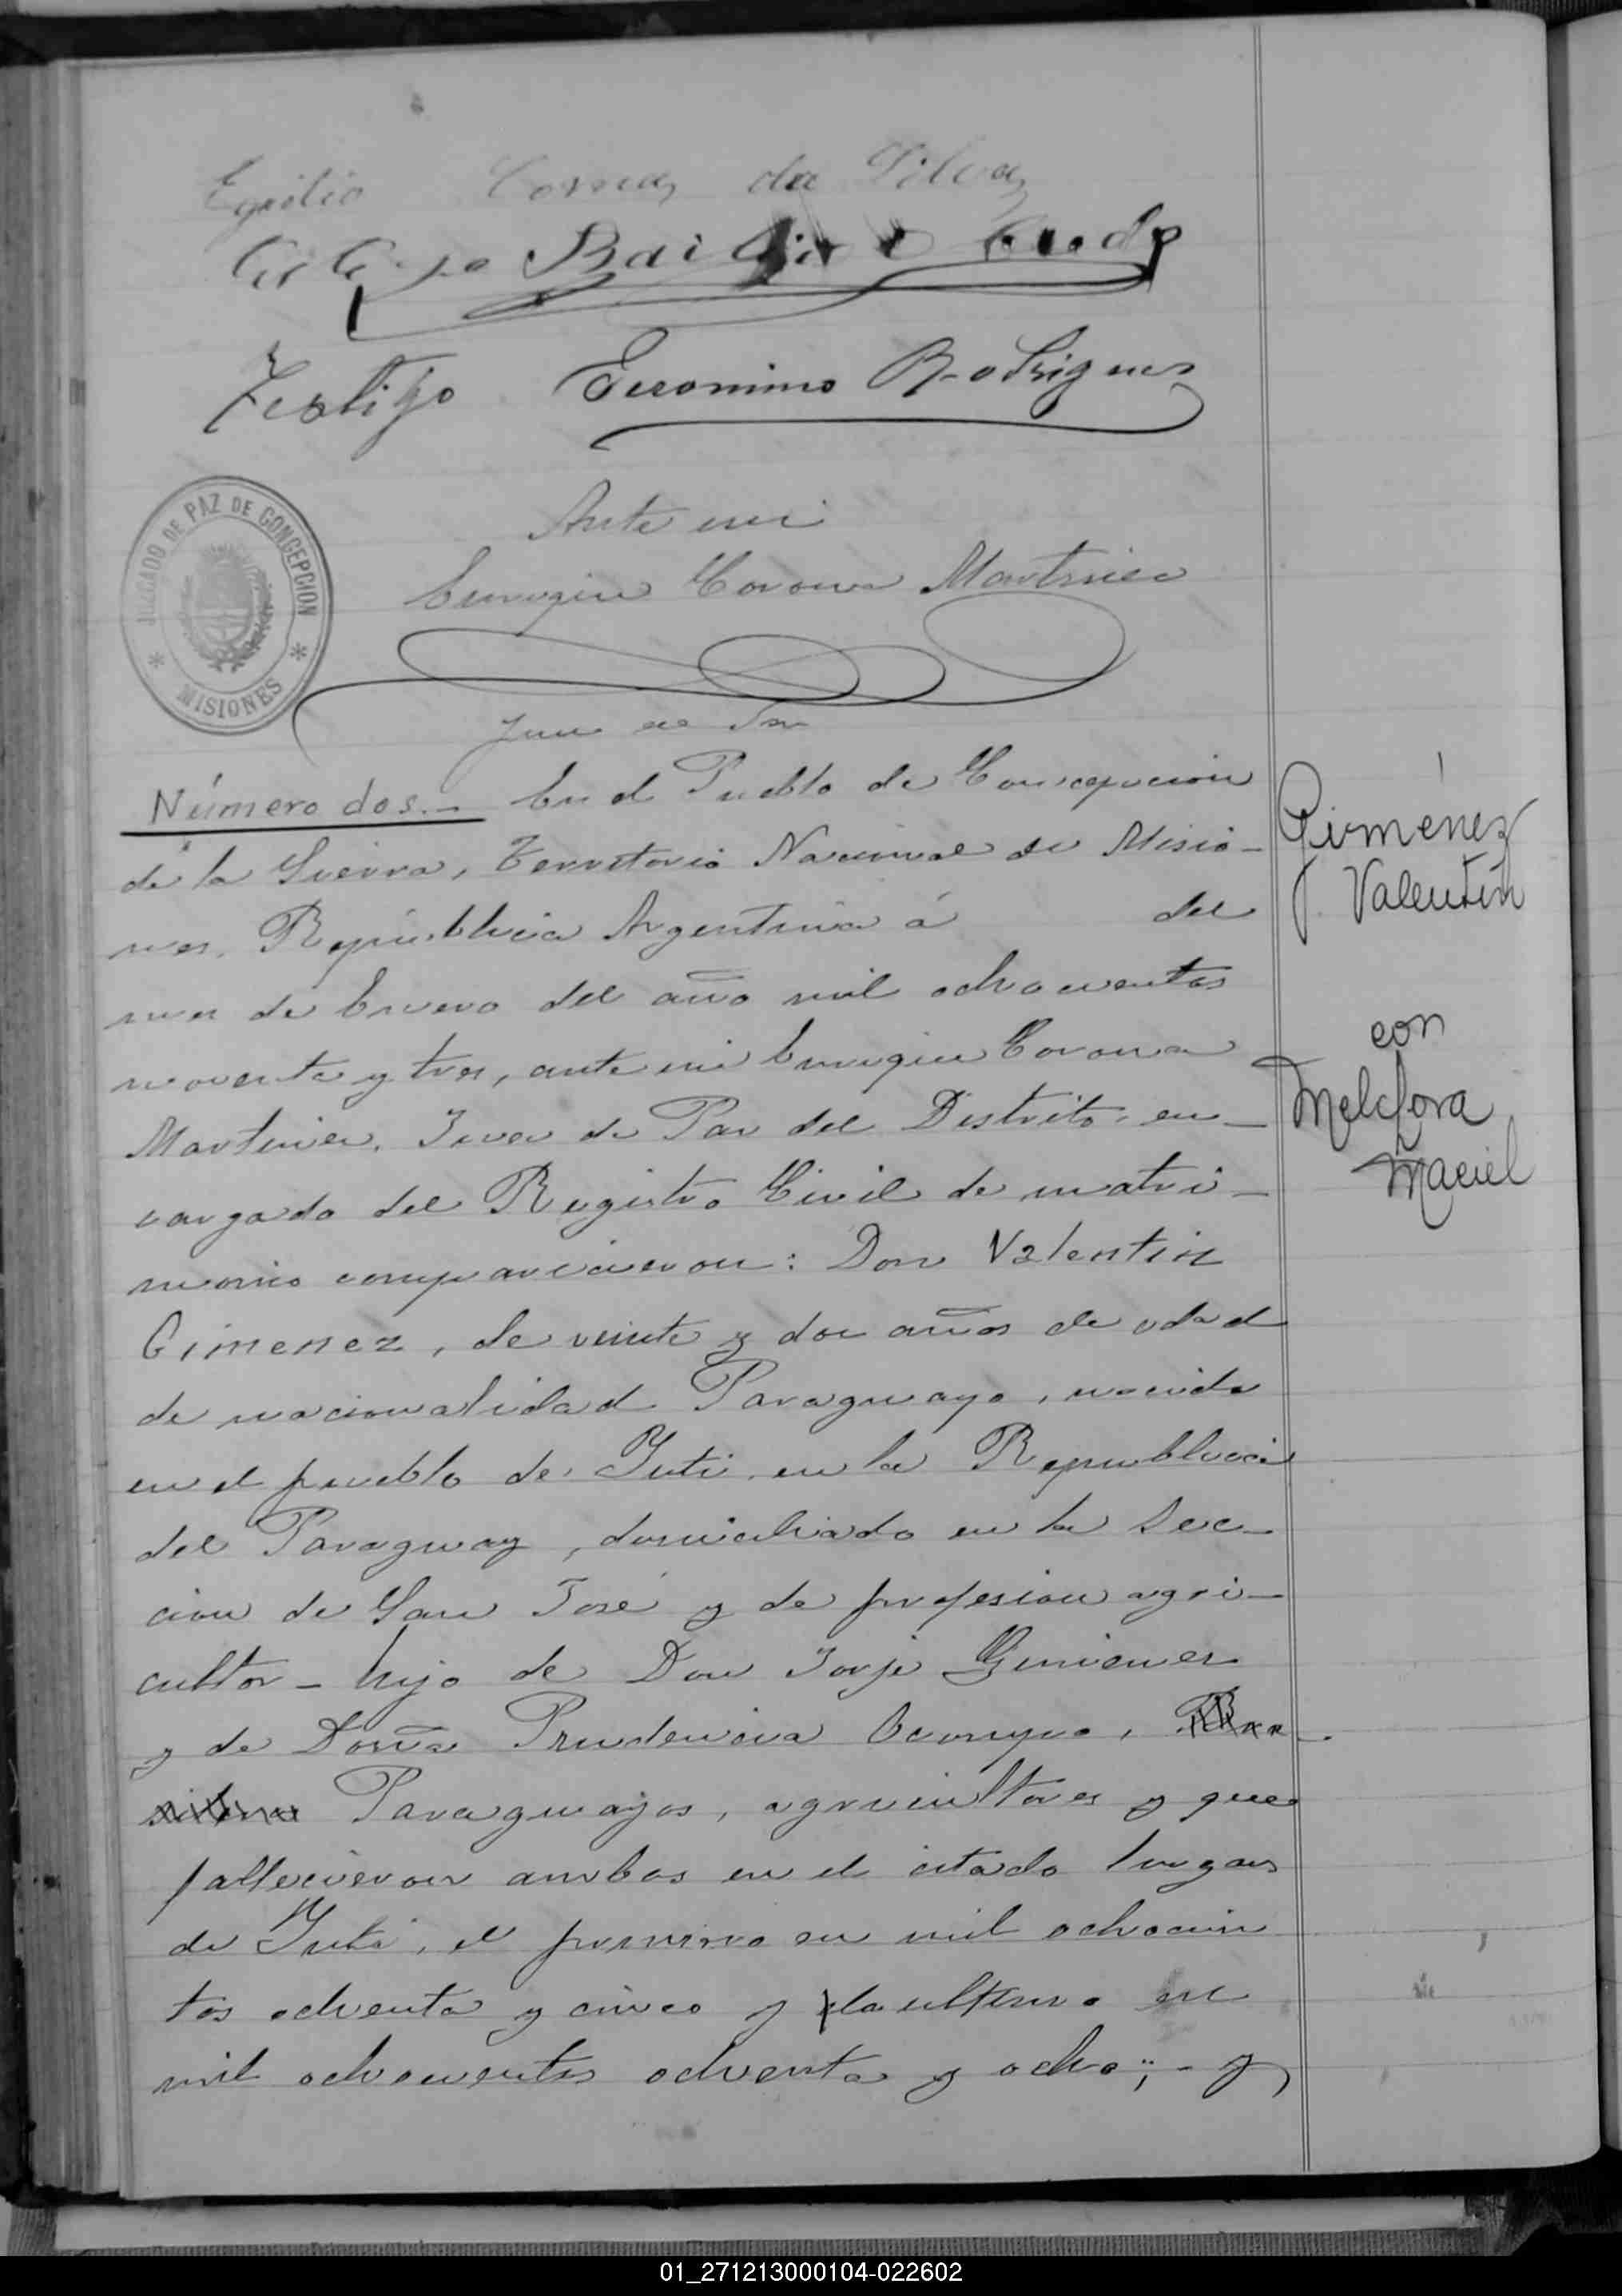 da Silva
Testigo Geronimo Rodrigues
JUZGADO DE PAZ DE CONCEPCION
* MISIONES *
Ante mi
Corona Martinez
Juez de Paz
Número dos.- En el Pueblo de Concepcion
de la Sierra, Territorio Nacional de Misio-
nes, República Argentina á del
mes de Enero del año mil ochocientos
noventa y tres, ante mi Corona
Martinez, Juez de Paz del Distrito, en-
cargado del Registro Civil de matri-
monio comparecieron: Don Valentin
Gimenez, de veinte y dos años de edad
de nacionalidad Paraguayo, nacido
en el pueblo de Yuti, en la Republica
del Paraguay, domiciliado en la Sec-
cion de San José y de profesion agri-
cultor - hijo de Don Jorje Gimenez
y de Doña Prudencia
Paraguayos, agricultores y que
fallecieron ambos en el citado lugar
de Yuti, el primero en mil ochocien
tos ochenta y cinco y la ultima en
mil ochocientos ochenta y ocho; - y
Giménez
Valentín
con
Melchora
Maciel
01_271213000104-022602